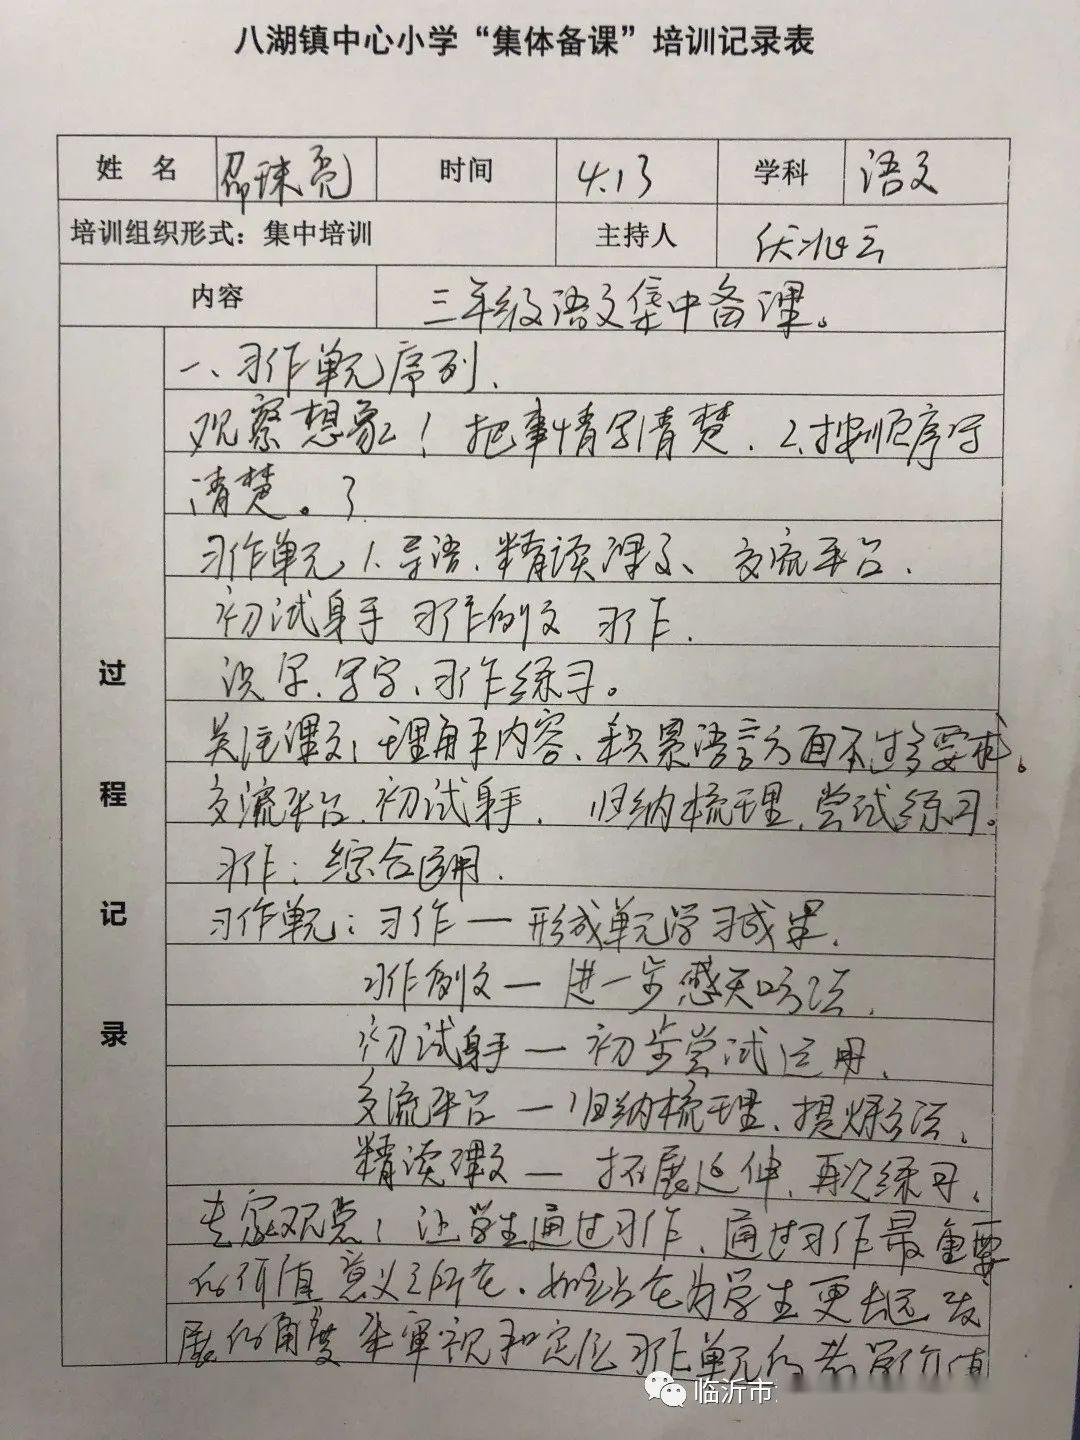 八湖镇中心小学“集体备课”培训记录表
姓 名 邵珠亮 时间 4.13 学科 语文
培训组织形式：集中培训 主持人 伏兆云
内容 三年级语文集中备课。
过程记录
一、习作单元序列、
观察想象！把事情写清楚．2、按顺序写
清楚。3
习作单元，1、导语、精读课文、交流平台．
初试身手 习作例文 习作．
识字、写字、习作练习。
关注课文，理解内容、积累语言方面不过多要求。
交流平台、初试身手． 归纳梳理、尝试练习。
习作：综合运用．
习作单元：习作一形成单元学习成果．
习作例文一进一步感知方法．
初试身手一初步尝试运用．
交流平台一归纳梳理、提炼方法．
精读课文一拓展延伸、再次练习．
专家观点！让学生通过习作、通过习作最重要
的价值意义之所在．如站在为学生更长远发
展的角度来审视和定位习作单元的教学价值
临沂市